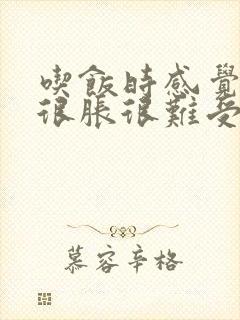 喫飯時感覺
很脹很難受
慕容辛格